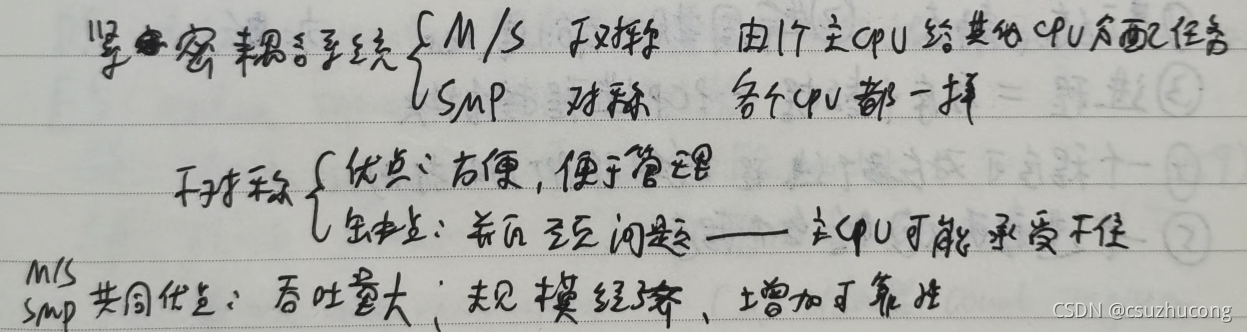 紧密耦合系统 { M/S 不对称 由1个主CPU给其他CPU分配任务
SMP 对称 各个CPU都一样
不对称 { 优点：方便，便于管理
缺点：瓶颈问题 —— 主CPU可能承受不住
M/S
SMP 共同优点：吞吐量大；规模经济、增加可靠性
CSDN @csuzhucong